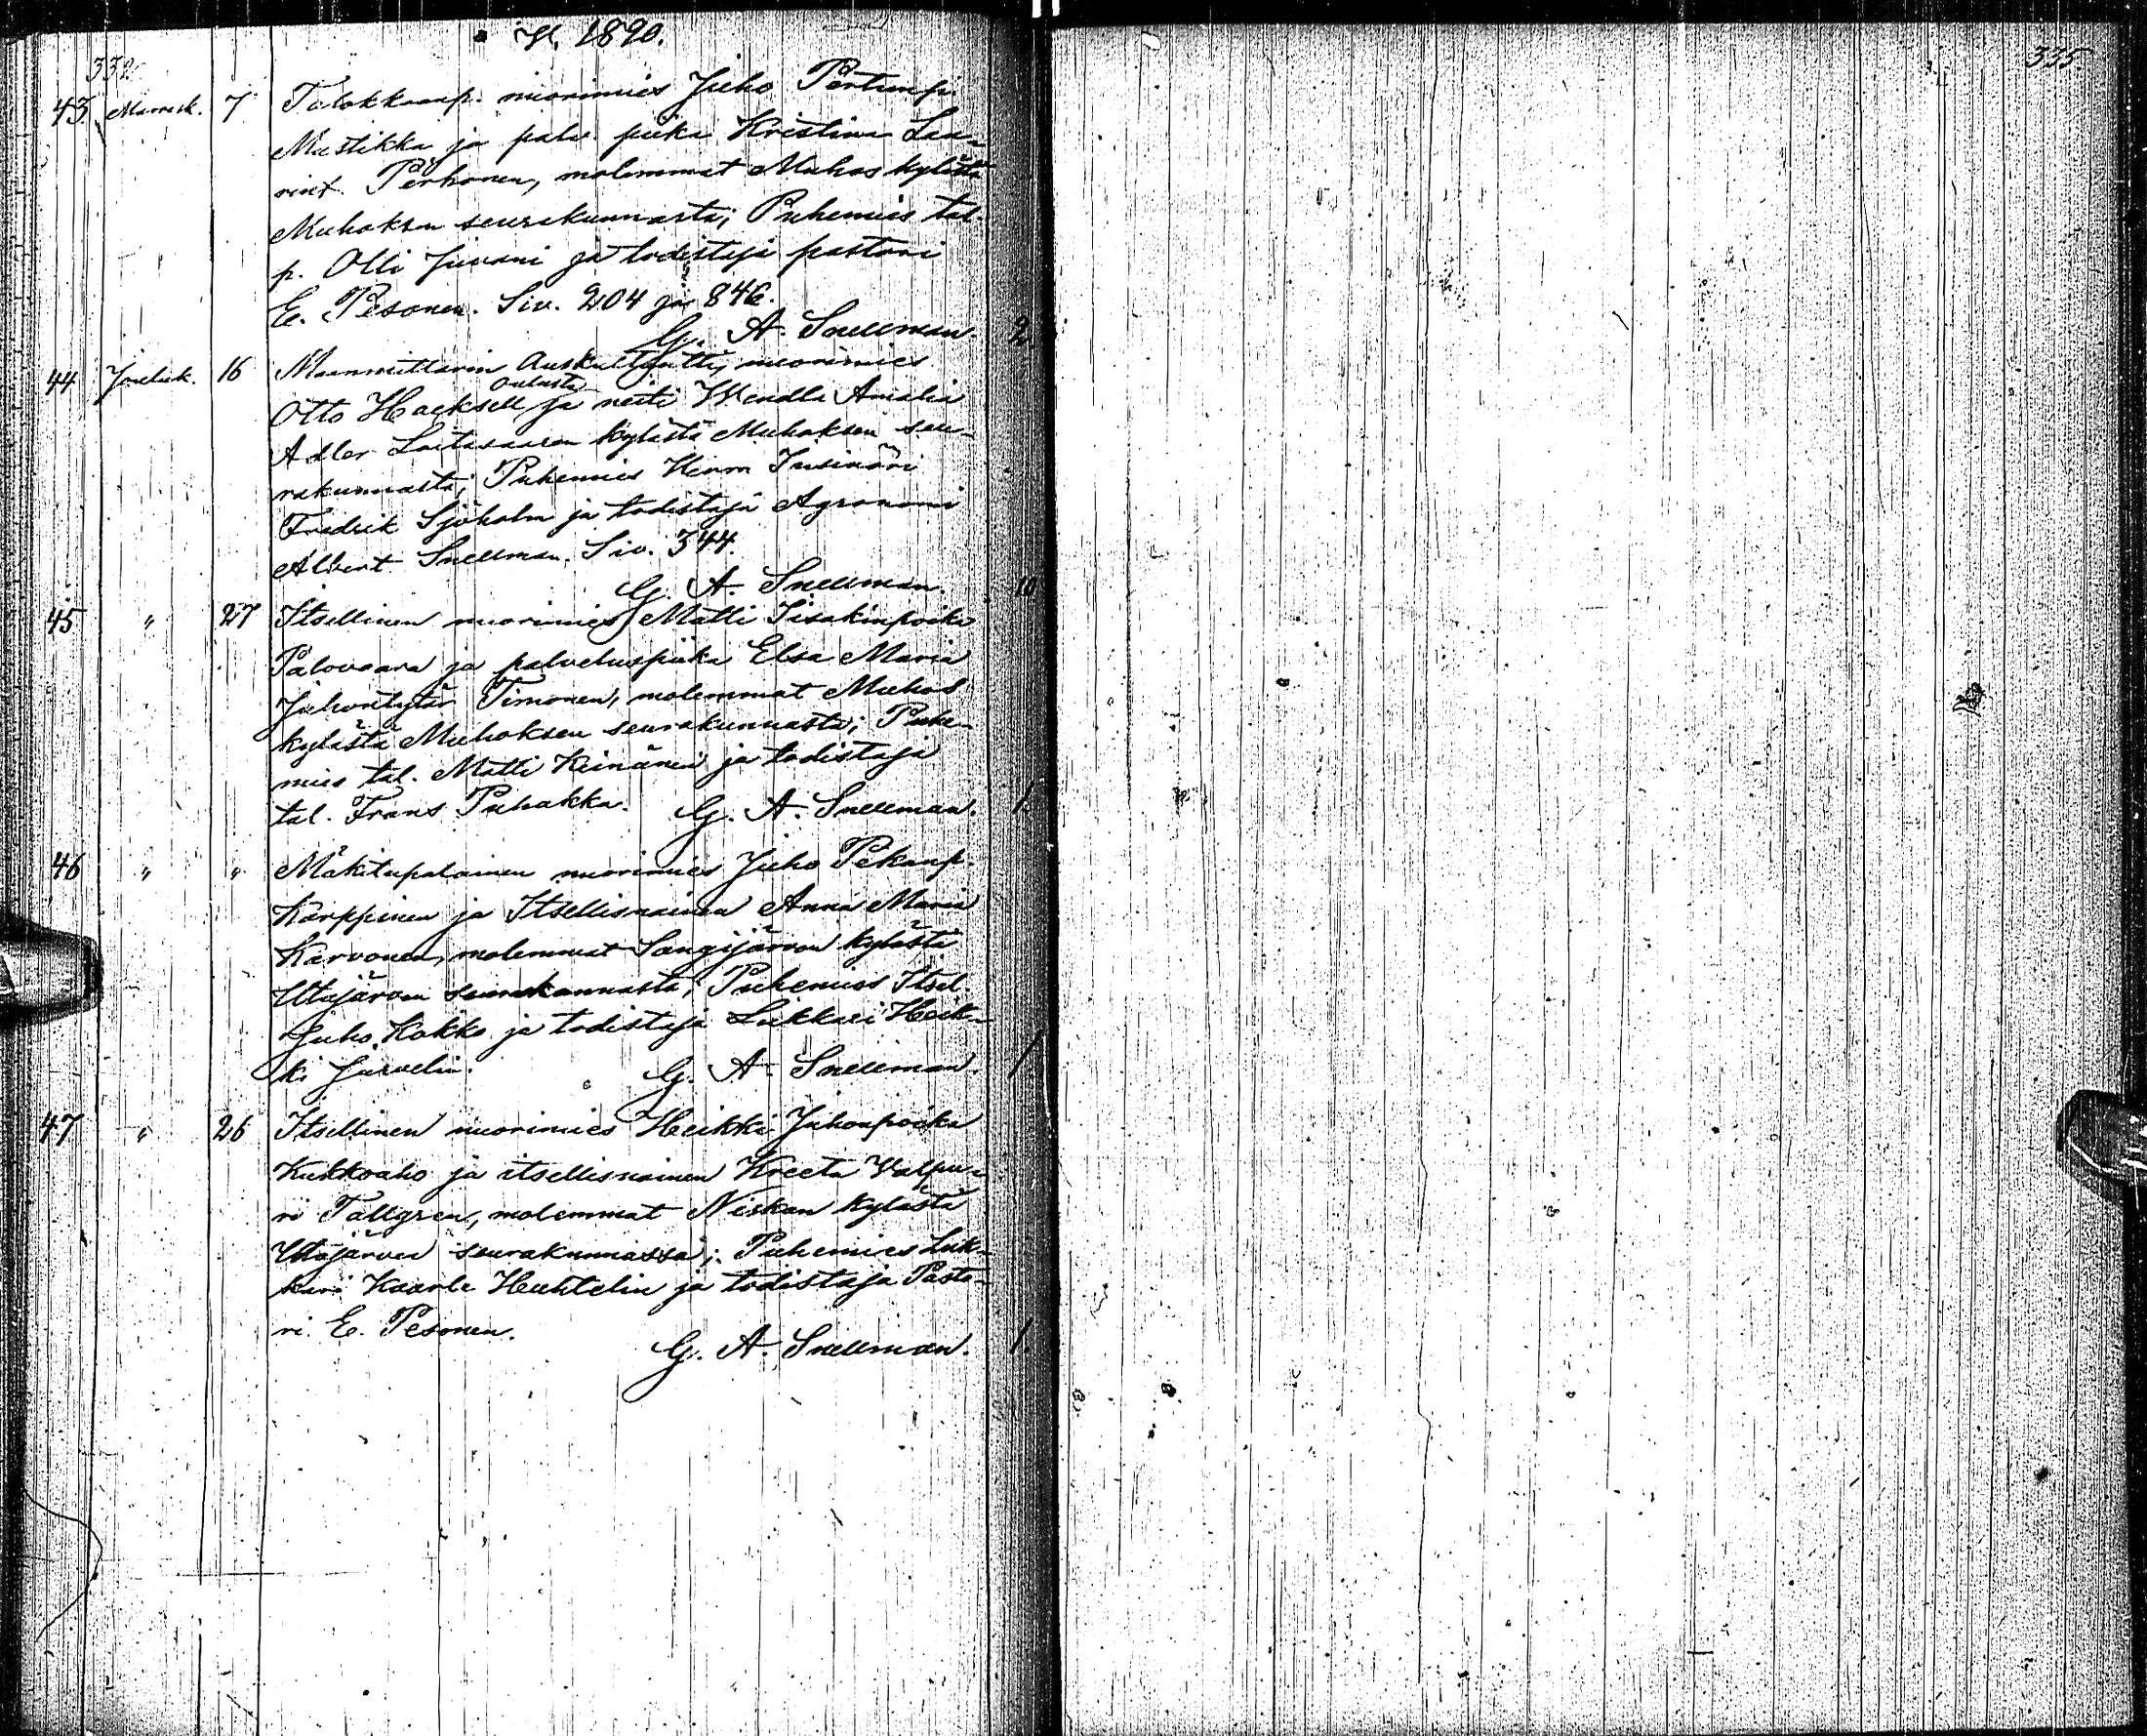 V. 1890.
332.
335
43. Marrask. 7 Talokkaanp. nuorimies Juho Pertunp.
Mustikka ja palv. piika Kristina Lau-
rint. Perhonen, molemmat Muhos kylästä
Muhoksen seurakunnasta; Puhemies tal.
p. Olli Juvani ja todistaja pastori
E. Pesonen. Siv. 204 ja 846.
G. A. Snellman. 2
44 Jouluk. 16 Maanmittarin Auskultantti, nuorimies
Oulusta
Otto Hacksell ja neiti Wendla Amalia
Adler Laitasaaren kylästä Muhoksen seu-
rakunnasta; Puhemies Herra Insinööri
Fredrik Sjöholm ja todistaja Agronomi
Albert Snellman. Siv. 344.
G. A. Snellman. 10
45 " 27 Itsellinen nuorimies Matti Iisakinpoika
Palovaara ja palveluspiika Elsa Maria
Juhontytär Timonen, molemmat Muhos
kylästä Muhoksen seurakunnasta; Puhe-
mies tal. Matti Keinänen ja todistaja
tal. Frans Puhakka. G. A. Snellman. 1.
46 " " Mäkitupalainen nuorimies Juho Pekanp.
Karppinen ja Itsellisnainen Anna Maria
Karvonen, molemmat Sangijärven kylästä
Utajärven seurakunnasta; Puhemies Itsel.
Juho Kokko ja todistaja Lukkari Heik-
ki Jurvelin. G. A. Snellman. 1
47 " 26 Itsellinen nuorimies Heikki Juhonpoika
Kukkoaho ja itsellisnainen Kreeta Valpu-
ri Tallgren, molemmat Niskan kylästä
Utajärven seurakunnassa; Puhemies Luk-
kari Kaarle Huhtelin ja todistaja Pasto-
ri E. Pesonen.
G. A. Snellman. 1.